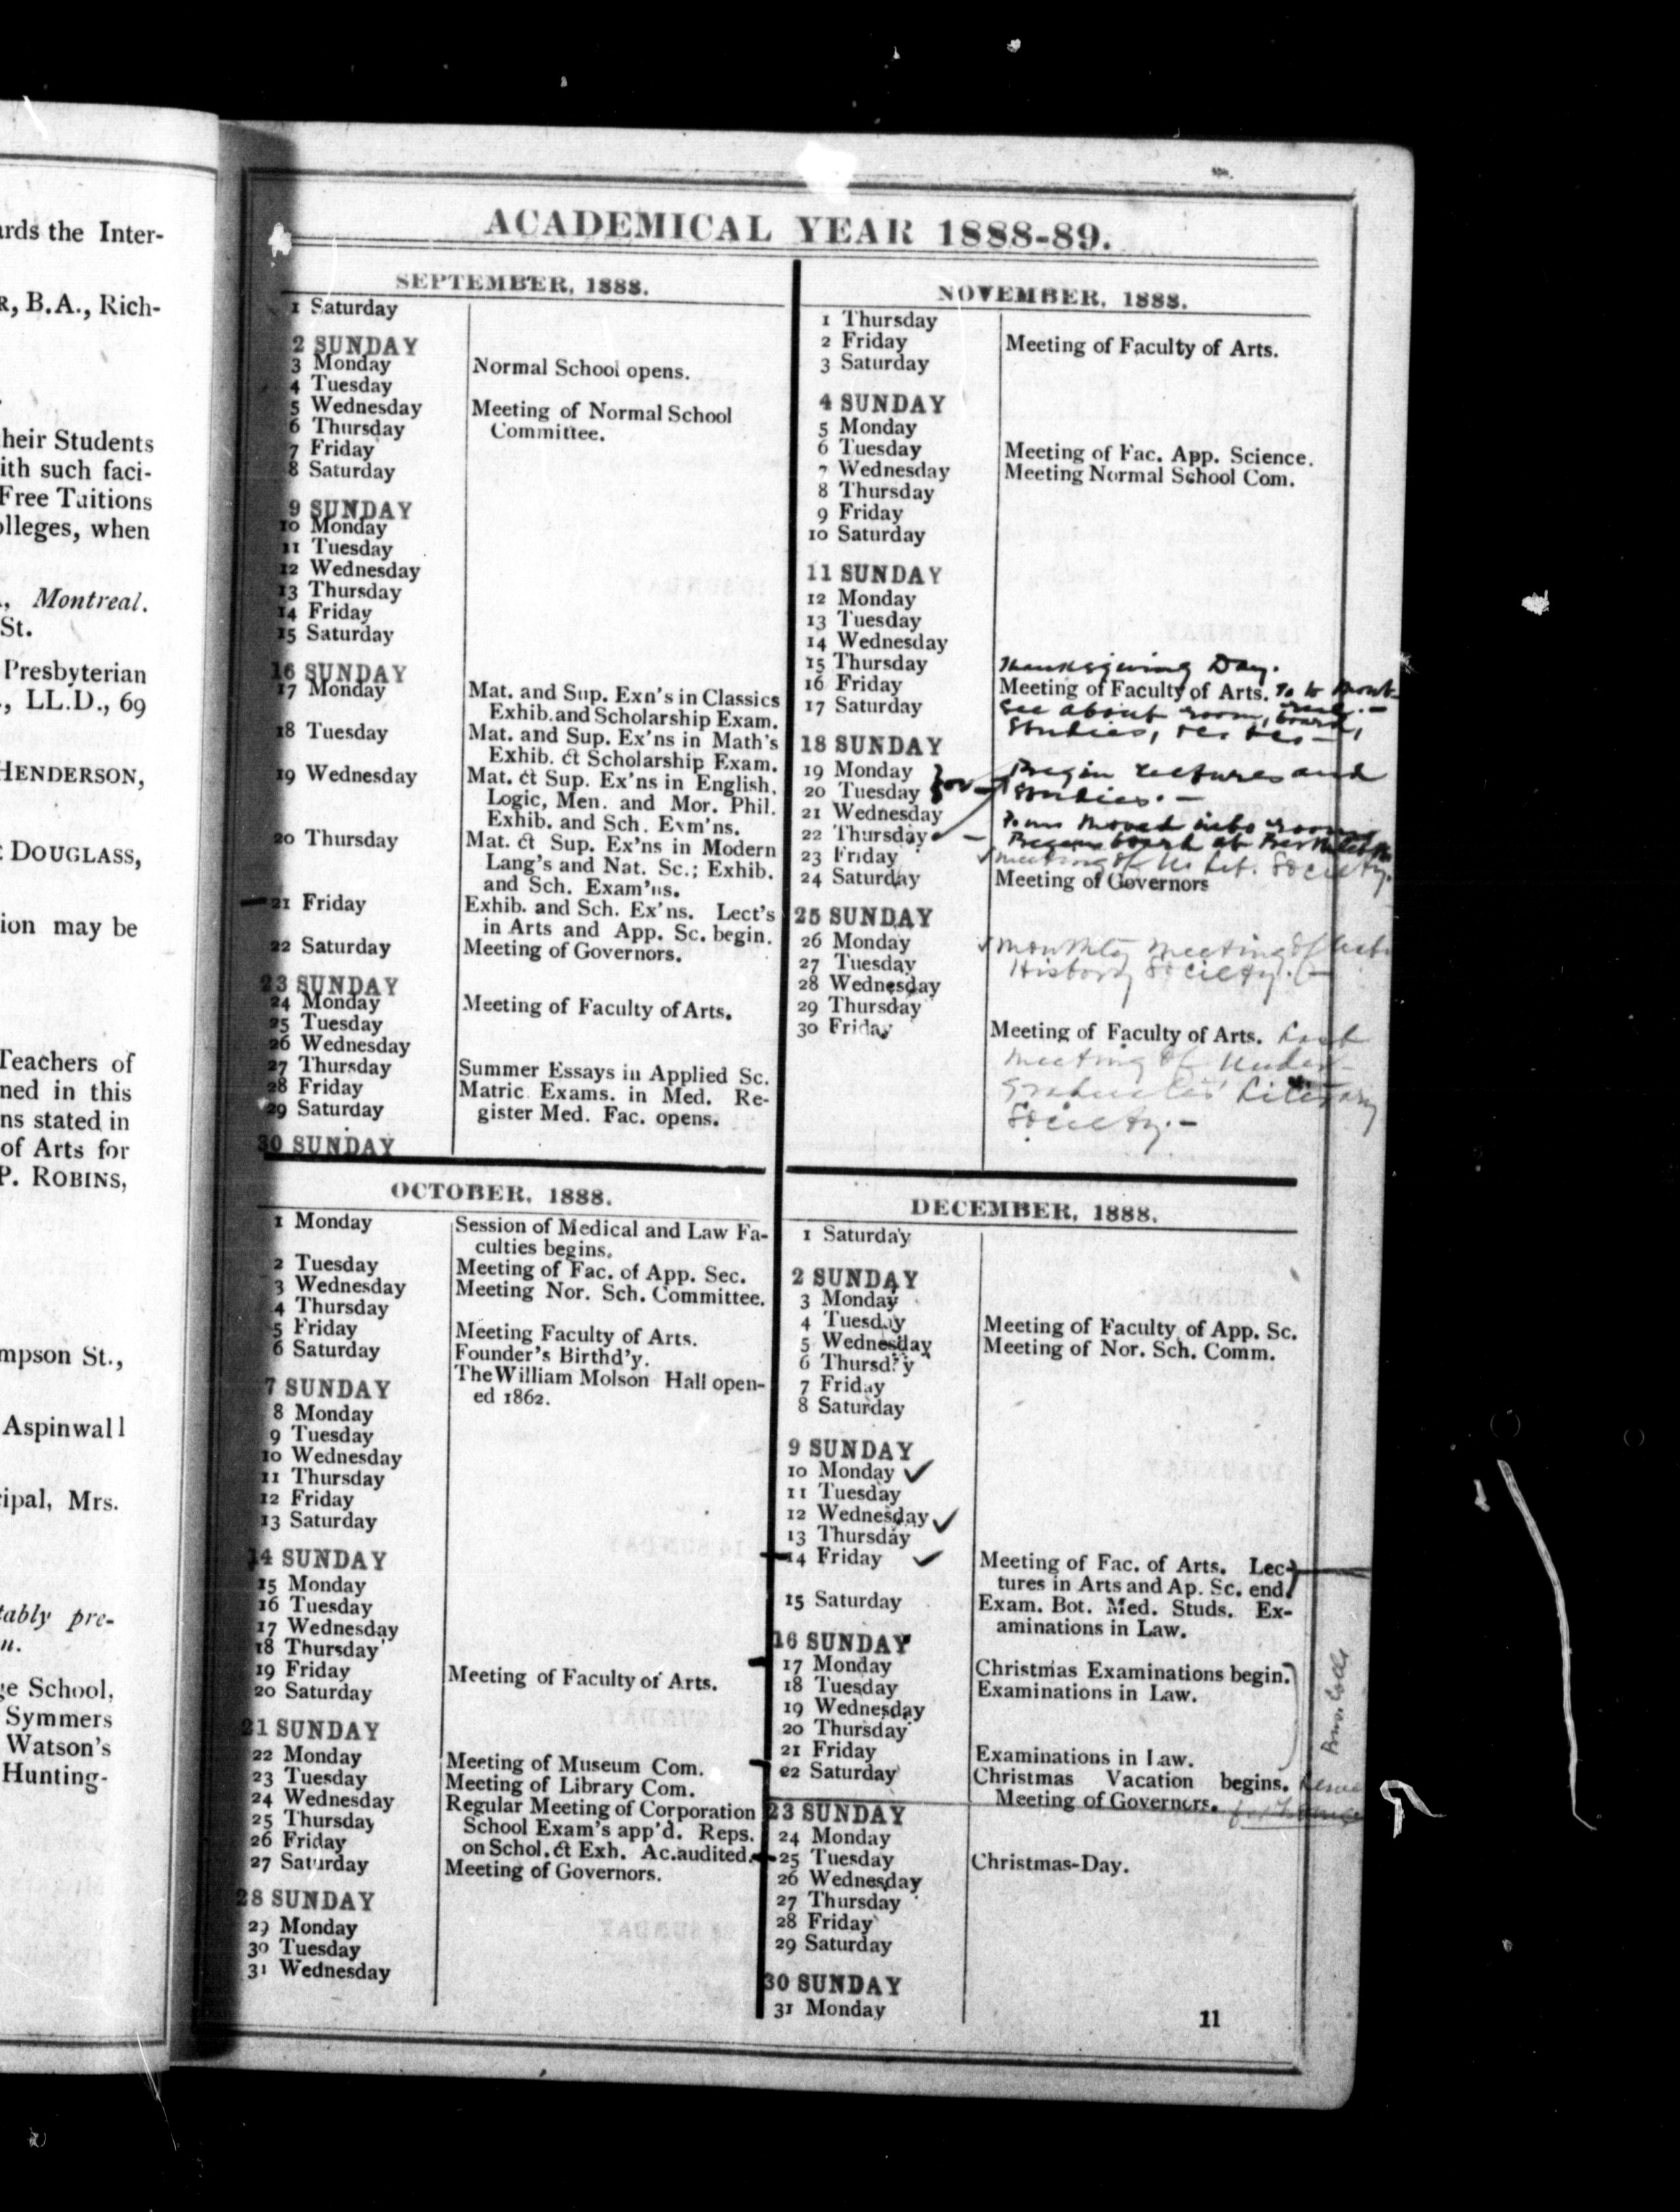 ards the Inter-
R, B.A., Rich-
heir Students
ith such faci-
Free Tuitions
olleges, when
Montreal.
St.
Presbyterian
., LL.D., 69
HENDERSON,
DOUGLASS,
ion may be
Teachers of
ned in this
ns stated in
of Arts for
P. ROBINS,
mpson St.,
Aspinwall
ipal, Mrs.
tably pre-
n.
ge School,
Symmers
Watson's
Hunting-
ACADEMICAL YEAR 1888-89.
SEPTEMBER, 1888.
1 Saturday
2 SUNDAY
3 Monday Normal School opens.
4 Tuesday
5 Wednesday Meeting of Normal School
6 Thursday Committee.
7 Friday
8 Saturday
9 SUNDAY
10 Monday
11 Tuesday
12 Wednesday
13 Thursday
14 Friday
15 Saturday
16 SUNDAY
17 Monday Mat. and Sup. Exn's in Classics
Exhib. and Scholarship Exam.
18 Tuesday Mat. and Sup. Ex'ns in Math's
Exhib. & Scholarship Exam.
19 Wednesday Mat. & Sup. Ex'ns in English,
Logic, Men. and Mor. Phil.
Exhib. and Sch. Exm'ns.
20 Thursday Mat. & Sup. Ex'ns in Modern
Lang's and Nat. Sc.; Exhib.
and Sch. Exam'ns.
21 Friday Exhib. and Sch. Ex'ns. Lect's
in Arts and App. Sc. begin.
22 Saturday Meeting of Governors.
23 SUNDAY
24 Monday Meeting of Faculty of Arts.
25 Tuesday
26 Wednesday
27 Thursday Summer Essays in Applied Sc.
28 Friday Matric. Exams. in Med. Re-
29 Saturday gister Med. Fac. opens.
30 SUNDAY
OCTOBER, 1888.
1 Monday Session of Medical and Law Fa-
culties begins.
2 Tuesday Meeting of Fac. of App. Sec.
3 Wednesday Meeting Nor. Sch. Committee.
4 Thursday
5 Friday Meeting Faculty of Arts.
6 Saturday Founder's Birthd'y.
7 SUNDAY The William Molson Hall open-
ed 1862.
8 Monday
9 Tuesday
10 Wednesday
11 Thursday
12 Friday
13 Saturday
14 SUNDAY
15 Monday
16 Tuesday
17 Wednesday
18 Thursday
19 Friday Meeting of Faculty of Arts.
20 Saturday
21 SUNDAY
22 Monday Meeting of Museum Com.
23 Tuesday Meeting of Library Com.
24 Wednesday Regular Meeting of Corporation
25 Thursday School Exam's app'd. Reps.
26 Friday on Schol. & Exh. Ac. audited.
27 Saturday Meeting of Governors.
28 SUNDAY
29 Monday
30 Tuesday
31 Wednesday
NOVEMBER, 1888.
1 Thursday
2 Friday Meeting of Faculty of Arts.
3 Saturday
4 SUNDAY
5 Monday
6 Tuesday Meeting of Fac. App. Science.
7 Wednesday Meeting Normal School Com.
8 Thursday
9 Friday
10 Saturday
11 SUNDAY
12 Monday
13 Tuesday
14 Wednesday
15 Thursday Thanksgiving Day.
16 Friday Meeting of Faculty of Arts. To to Mont-
real.-
17 Saturday See about room, board,
Studies,
18 SUNDAY
19 Monday Begin lectures and
20 Tuesday } or Studies.-
21 Wednesday moved into room
22 Thursday - board at
23 Friday meeting of Lit. Society.
24 Saturday Meeting of Governors
25 SUNDAY
26 Monday Monthly meeting of
27 Tuesday History Society.-
28 Wednesday
29 Thursday
30 Friday Meeting of Faculty of Arts. Last
meeting of Under-
graduates' Literary
Society.-
DECEMBER, 1888.
1 Saturday
2 SUNDAY
3 Monday
4 Tuesday Meeting of Faculty of App. Sc.
5 Wednesday Meeting of Nor. Sch. Comm.
6 Thursday
7 Friday
8 Saturday
9 SUNDAY
10 Monday ✓
11 Tuesday
12 Wednesday ✓
13 Thursday
14 Friday ✓ Meeting of Fac. of Arts. Lec-
tures in Arts and Ap. Sc. end.
15 Saturday Exam. Bot. Med. Studs. Ex-
aminations in Law.
16 SUNDAY
17 Monday Christmas Examinations begin.
18 Tuesday Examinations in Law.
19 Wednesday
20 Thursday
21 Friday Examinations in Law.
22 Saturday Christmas Vacation begins. Leave
Meeting of Governors. for home
23 SUNDAY
24 Monday
25 Tuesday Christmas-Day.
26 Wednesday
27 Thursday
28 Friday
29 Saturday
30 SUNDAY
31 Monday
11